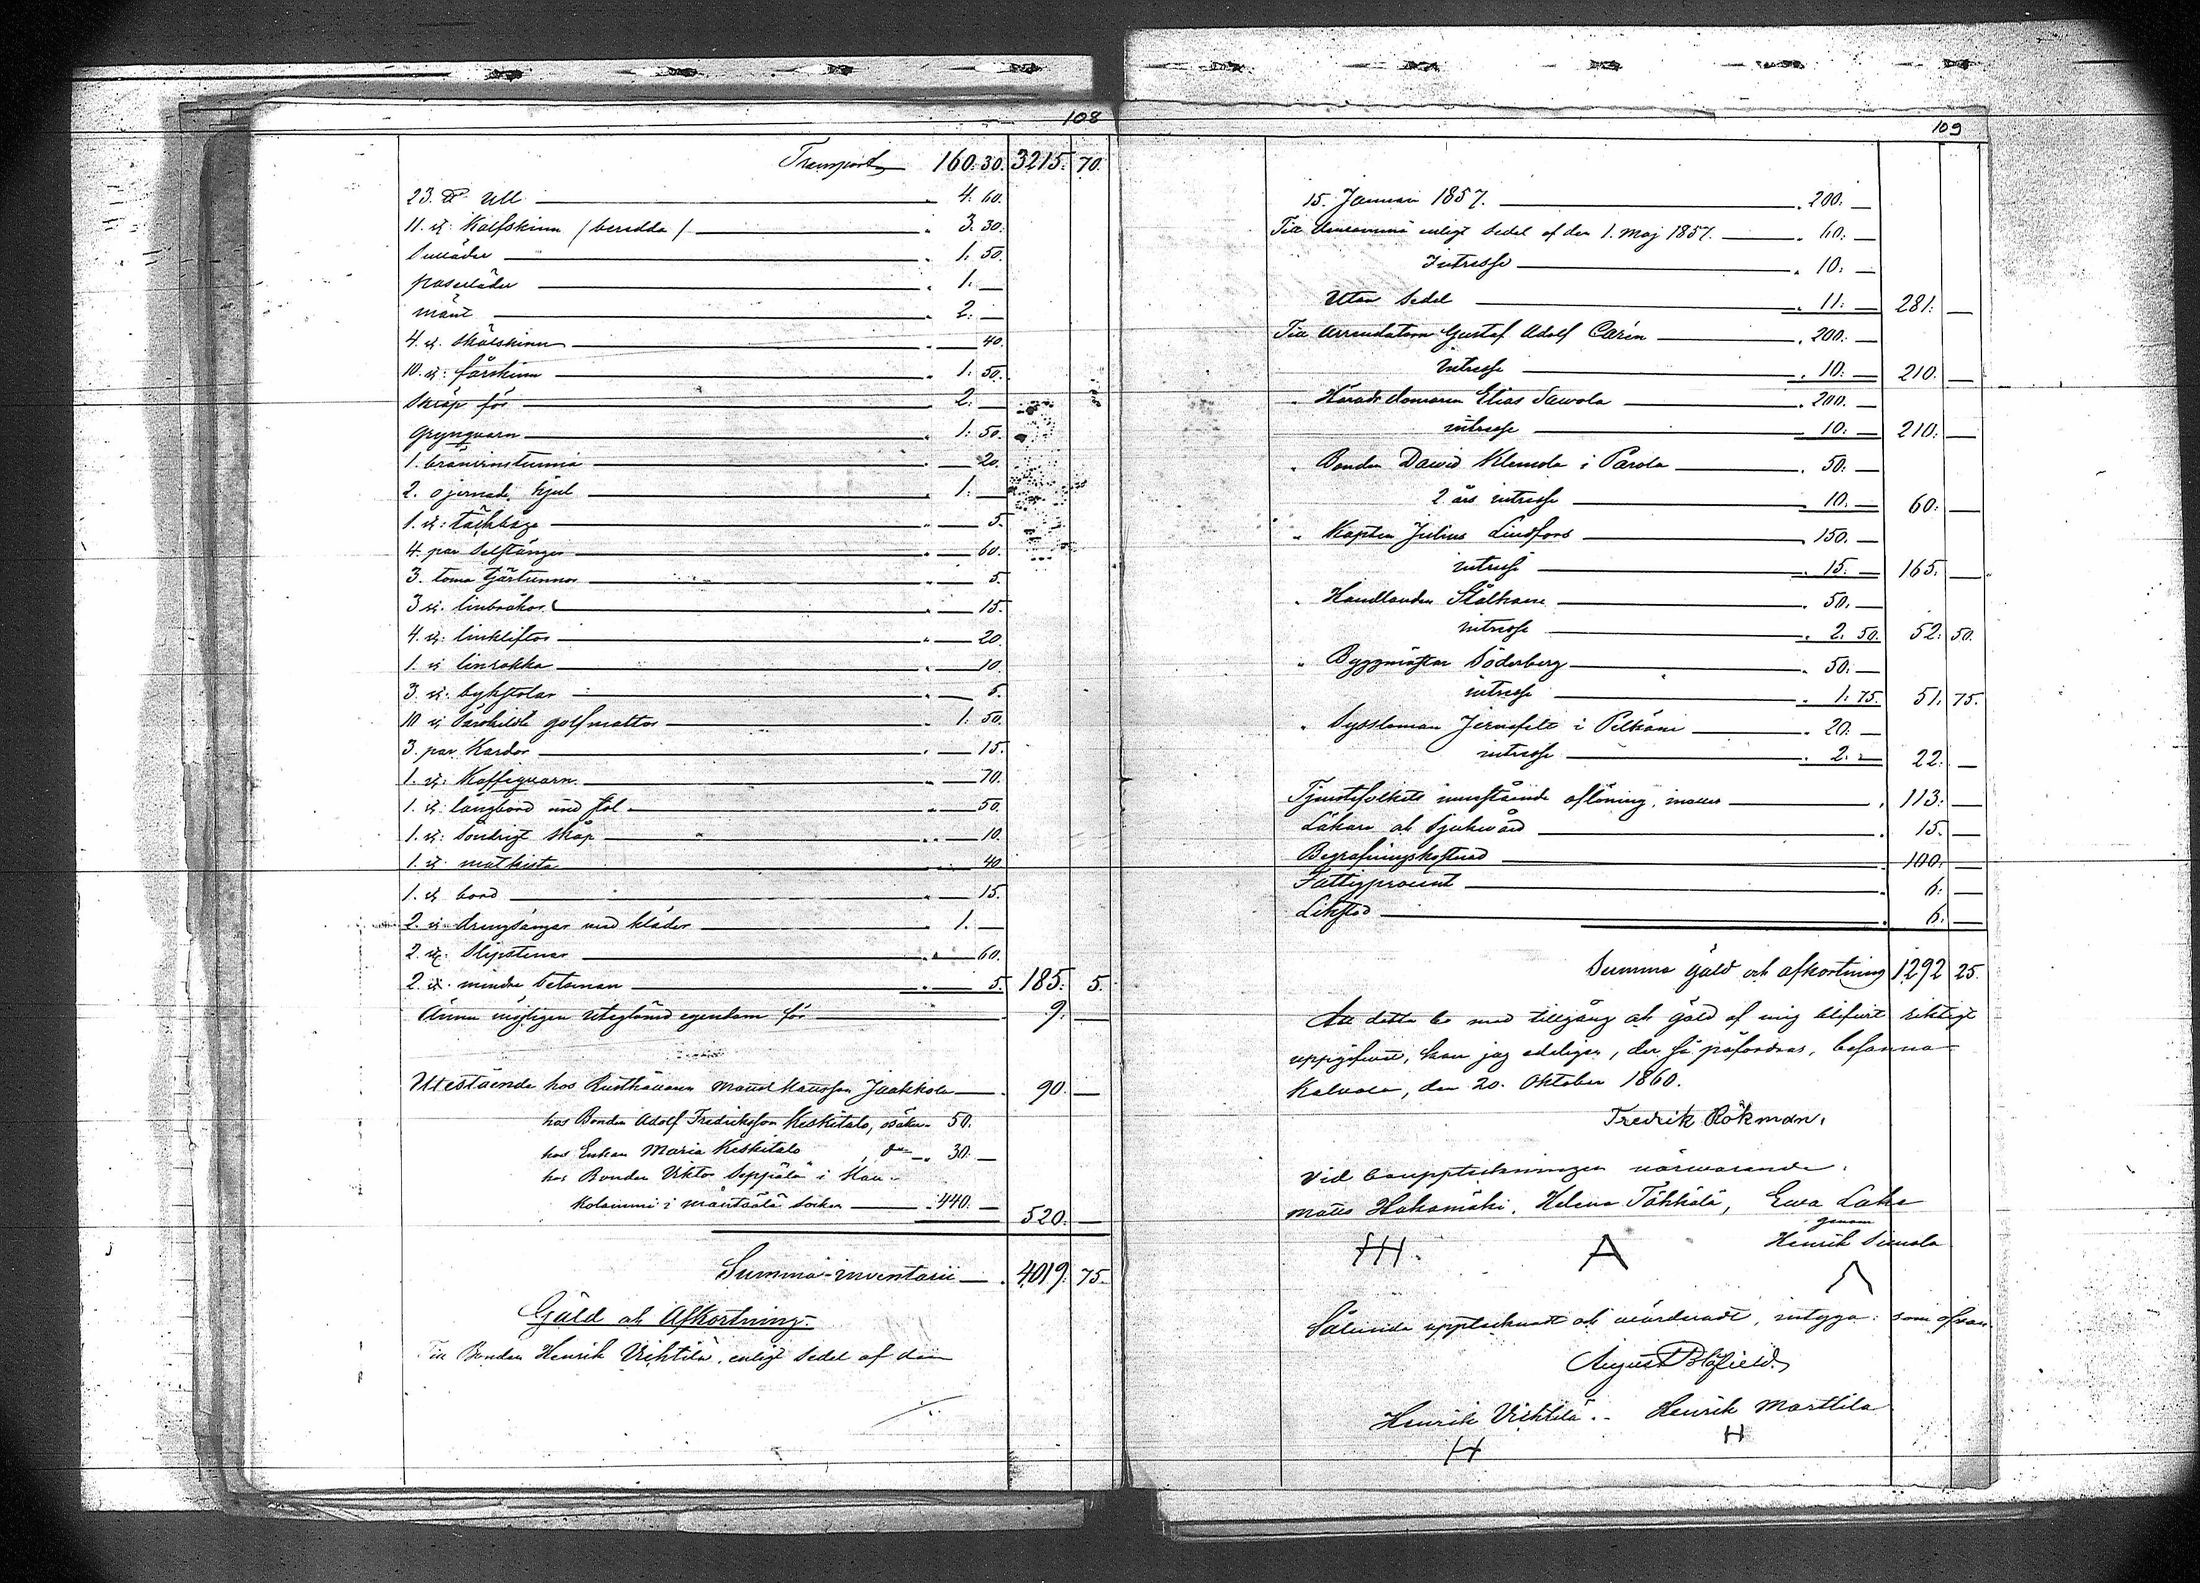 108
Transport 160. 30. 3215. 70.
23. ℔ Ull 4. 60.
11. st: Kalfskinn / beredda / 3. 30.
Sulläder 1. 50.
paserläder 1. —
mänt 2. —
4. st. skälskinn — 40.
10. st: fårskinn 1. 50.
Skräp för 2. —
Grynqvarn 1. 50.
1. bränvinstunna — 20.
2. ojernad. hjul 1. —
1. st: täckbåge — 5.
4. par Selstänger — 60.
3. toma tjärtunnor — 5.
3 st. linbråkor — 15.
4. st: linkliftor — 20
1. st linrakka — 10
3. st. bykstolar — 5.
10 st Särskildt golfmattor 1. 50.
3. par Kardor — 15.
1. st: Kaffeqvarn — 70.
1. st: långbord med stol — 50.
1. st: Söndrigt skåp — 10.
1. st matkista — 40
1. st bord — 15.
2. st drengsängar med kläder 1. —
2. st. Slipstenar — 60.
2. st. mindre — 5. 185. 5.
Ännu möjligen uteglömd egendom för 9. —
Utestående hos Rusthållaren Matts Mattsson Jaakkola 90. —
hos Bonden Adolf Fredriksson Keskitalo, osäker 50.
hos Enkan Maria Keskitalo do 30. —
hos Bonden Viktor Seppälä i Kau-
kolammi i Mäntsälä Socken 440. — 520. —
Summa inventarii 4019. 75.
Gäld och Afkortning.
Till Bonden Henrik Vichtilä, enligt Sedel af den
109
15. Januari 1857. 200. —
Till densamma enligt Sedel af den 1. Maj 1857. 60. —
Intresse 10. —
Utan Sedel 11. — 281. —
Till Arrendatorn Gustaf Adolf Carén 200. —
intresse 10. — 210. —
" Häradsdomaren Elias Sawola 200. —
intresse 10. — 210. —
" Bonden David Klemola i Parola 50. —
2 års intresse 10. — 60. —
" Kapten Julius Lindfors 150. —
intresse 15. — 165. —
" Handlanden Stålhane 50. —
intresse 2. 50. 52. 50.
" Byggmästar Söderberg 50. —
intresse 1. 75. 51. 75.
" Syssloman Jernefelt i Pelkäne 20. —
intresse 2. — 22. —
Tjenstefolkets innestående aflöning, 113. —
Läkare och Sjukvård 15. —
Begrafningskostnad 100. —
Fattigprocent 6. —
Likstod 6. —
Summa gäld och afkortning 1292 25.
Att detta bo med tillgång och gäld af mig blifvit riktigt
uppgifvet, kan jag edeligen, der så påfordras, besanna
Kalvola, den 20. Oktober 1860.
Fredrik Rökman.
Vid bouppteckningen närvarande.
Matts Hakamäki. Helena Töhkälä, Ewa Laks
genom
Henrik Simola
H. A Λ
Sålunda upptecknadt och värderadt, intyga: som ofvan
August Blåfield.
Henrik Vichtilä. Henrik Marttila
H H